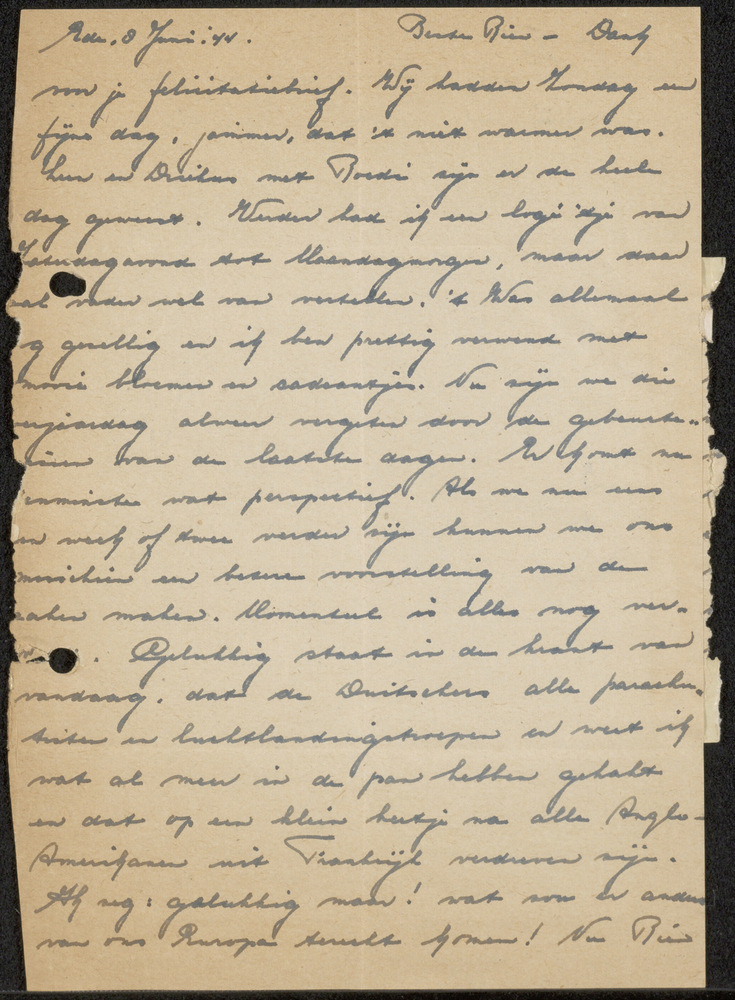 Ede, 8 Juni '44. Beste Bien - Dank
voor je felicitatiebrief. Wij hadden Zondag een
fijne dag, jammer, dat 't niet warmer was.
en met zijn er de heele
dag geweest. Verder had ik een logé'tje van
Zaterdagavond tot Maandagmorgen, maar daar
zal vader wel van vertellen. 't Was allemaal
g gezellig en ik ben prettig verwend met
mooie bloemen en cadeautjes. Nu zijn we die
verjaardag alweer vergeten door de gebeurte-
nissen van de laatste dagen. Er komt nu
tenminste wat perspectief. Als we nu eens
een week of twee verder zijn kunnen we ons
misschien een betere voorstelling van de
zaken maken. Momenteel is alles nog ver-
. Gelukkig staat in de krant van
vandaag. dat de Duitschers alle parachu-
tisten en luchtlandingstroepen en weet ik
wat al meer in de pan hebben gehakt
en dat op een klein na alle Anglo-
Amerikanen uit Frankrijk verdreven zijn.
Ik zeg: gelukkig maar! wat zou er anders
van ons Europa terecht komen! Nu Bien